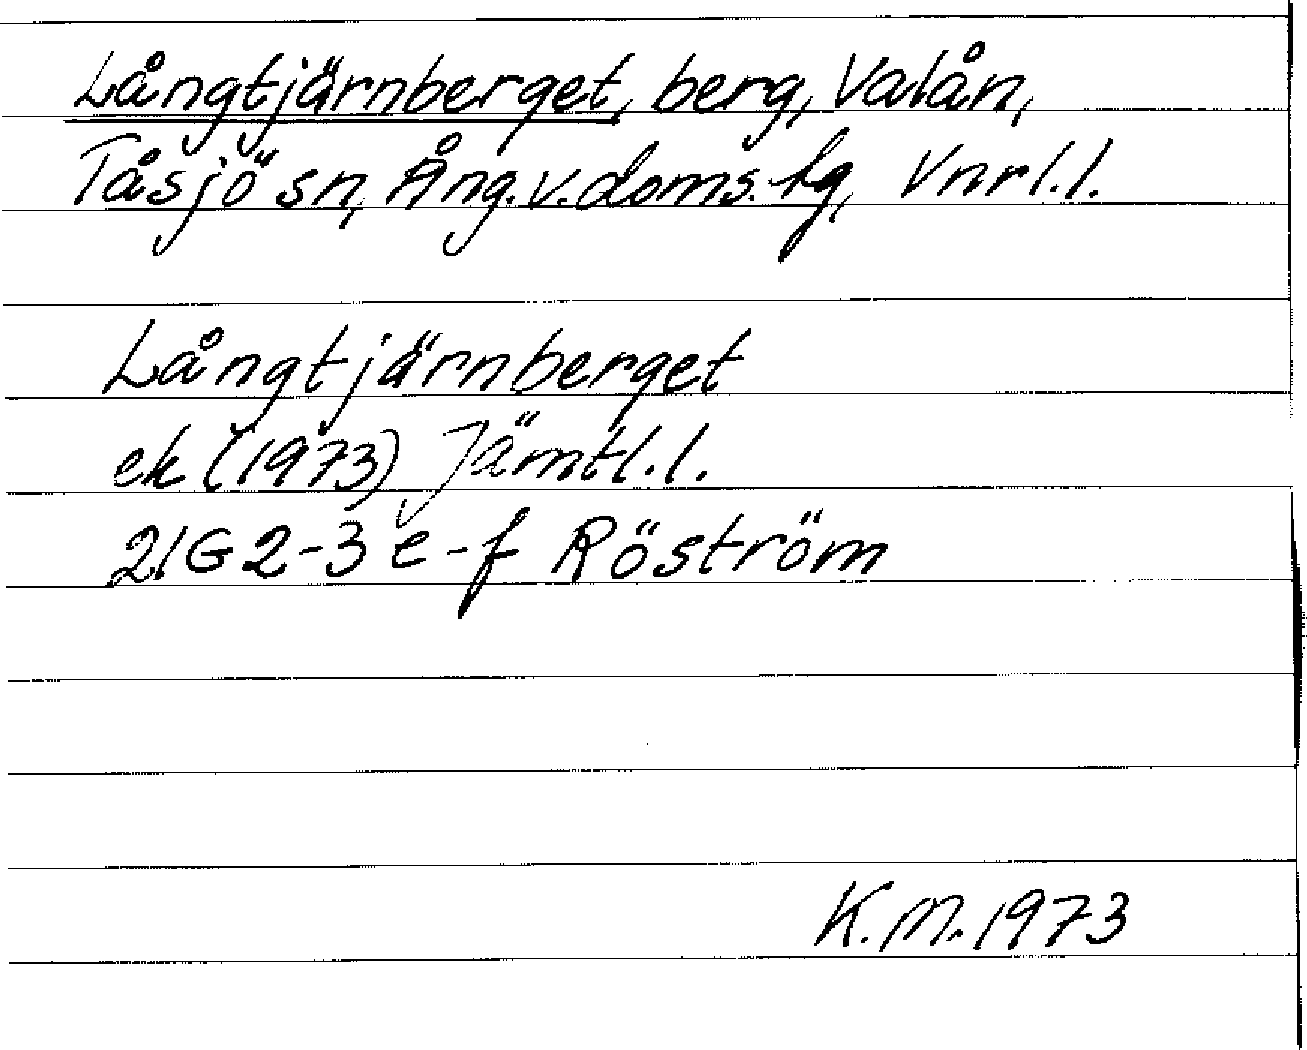 Långtjärnberget, berg, Valån,
Tåsjö sn, Ång.v.doms.tg, Vnrl.l.
Långtjärnberget
ek (1973) Jämtl.l.
21G 2-3 e-f Röström
K.M. 1973